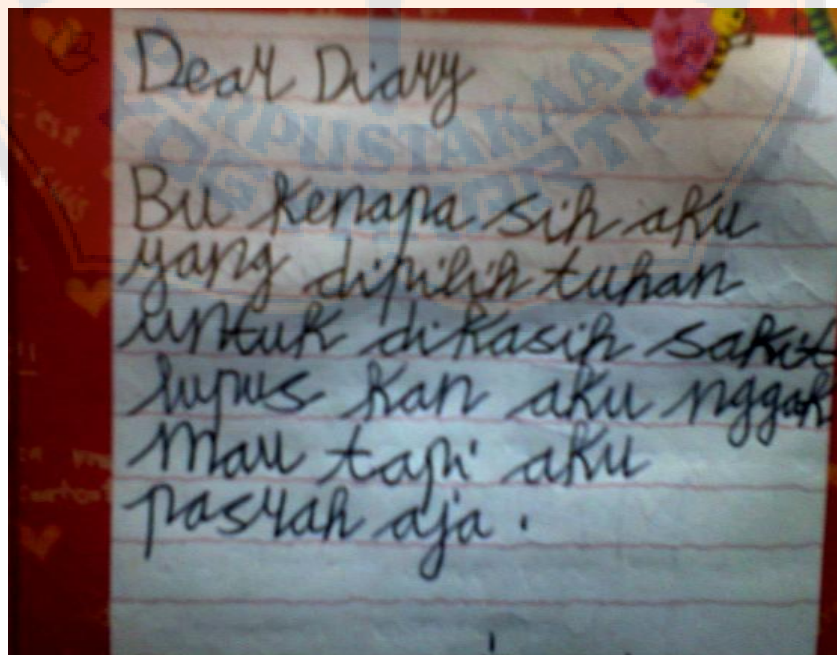 Dear Diary
Bu kenapa sih aku
yang dipilih tuhan
untuk dikasih sakit
lupus kan aku nggak
mau tapi aku
pasrah aja.
PERPUSTAKAAN